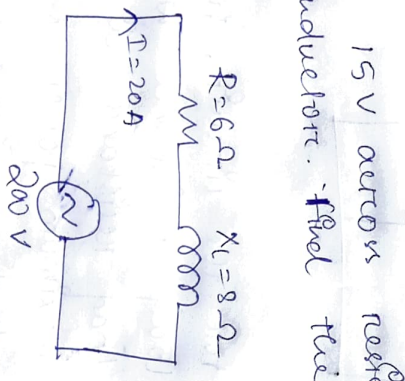 15V across
inductor. find the
R=6Ω
X_L=8Ω
I=20A
200 V